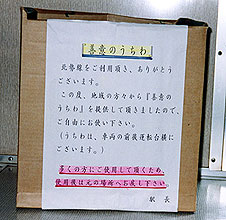 『善意のうちわ』
北勢線をご利用頂き、ありがとう
ございます。
この度、地域の方々から『善意の
うちわ』を提供して頂きましたので、
ご自由にお使い下さい。
（うちわは、車両の前後運転台横に
ございます。）
多くの方にご使用して頂くため、
使用後は元の場所へお戻し下さい。
駅 長